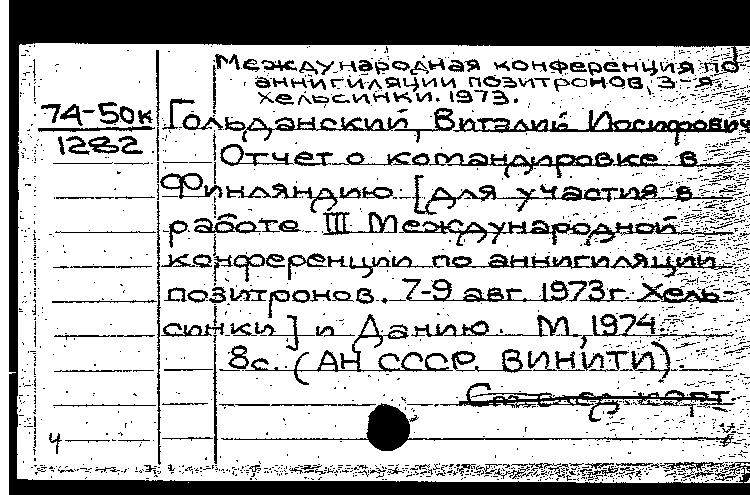 Международная конференция по
аннигиляции позитронов, 3-я.
Хельсинки. 1973.
74-50к
1282
Гольданский, Виталий Иосифович
Отчет о командировке в
Финляндию [для участия в
работе III Международной
конференции по аннигиляции
позитронов. 7-9 авг. 1973г. Хель-
синки] и Данию. М., 1974.
8с. (АН СССР. ВИНИТИ).
См след карт
ч